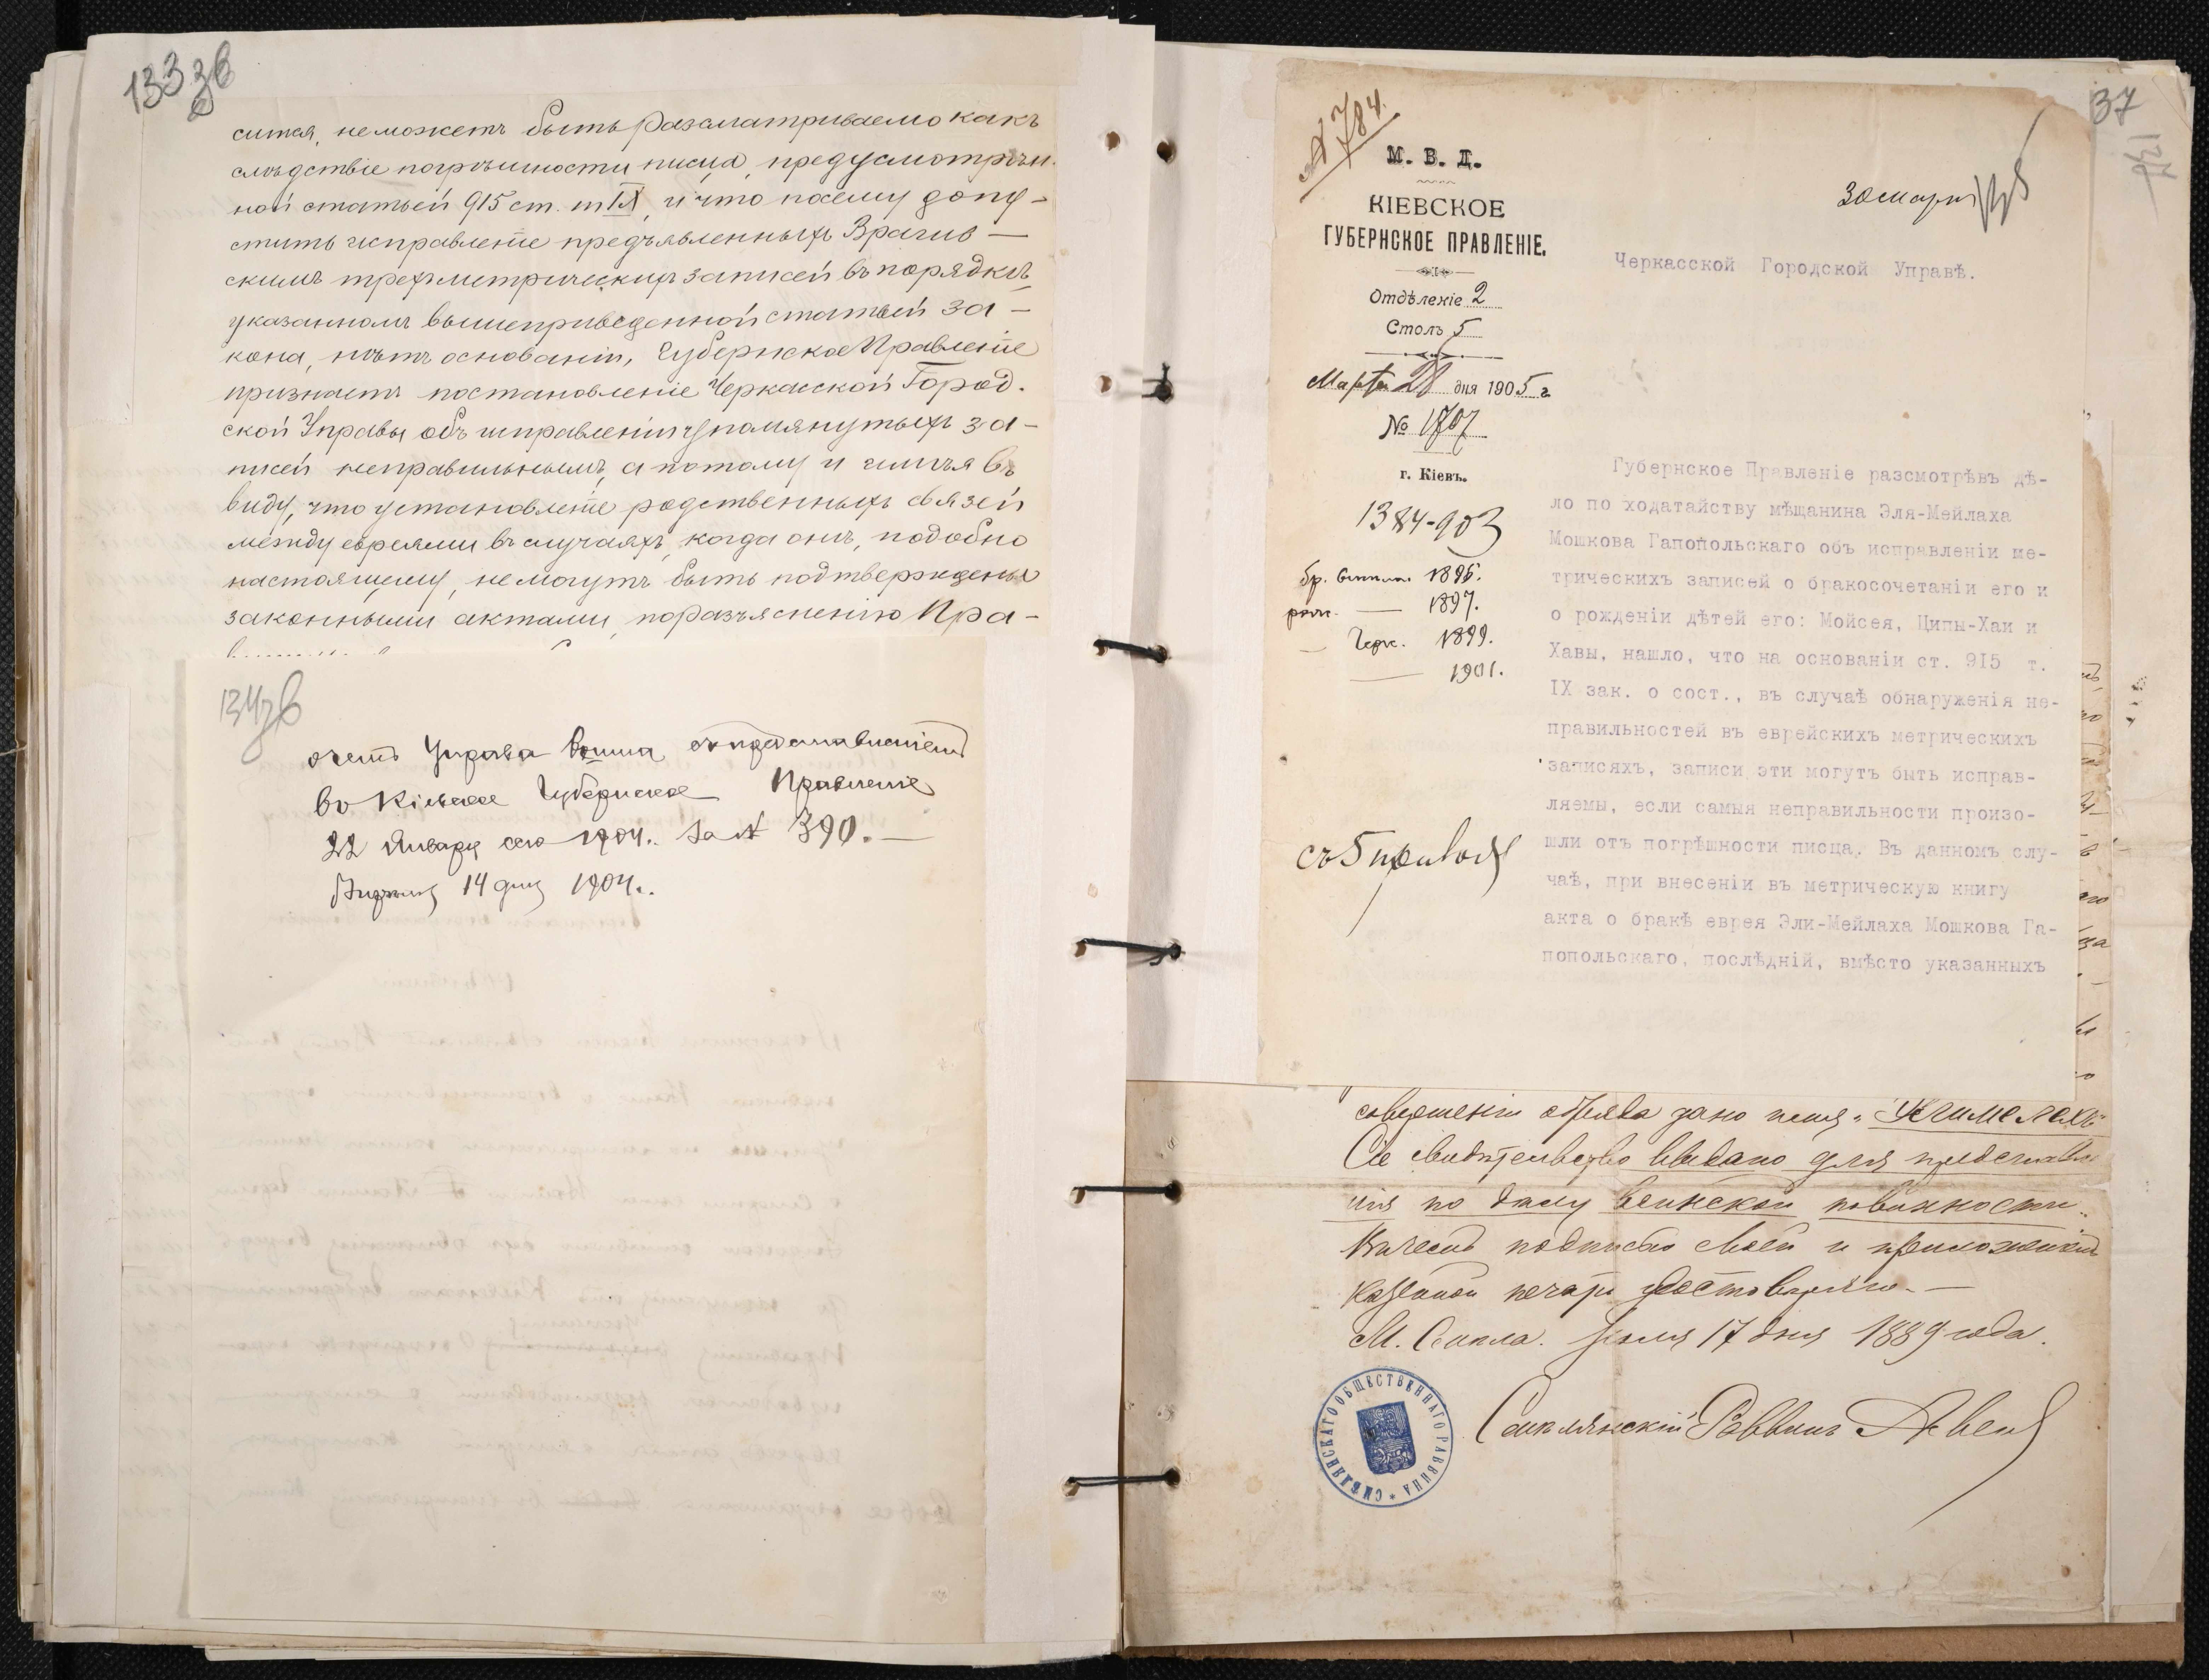 133 зв
сится, не можетъ быть разсматриваемо какъ
слѣдствіе погрѣшности писца, предусмотрѣн-
ной статьей 915 ст. т IX, и что посему допу-
стить исправленіе предъявленныхъ Врагив-
скимъ трехъ метрическихъ записей въ порядкѣ,
указанномъ вышеприведенной статьей за-
кона, нѣтъ основаній, Губернское Правленіе
признаетъ постановленіе Черкасской Город-
ской Управы объ исправленіи упомянутыхъ за-
писей неправильнымъ, а потому и имѣя въ
виду, что установленіе родственныхъ связей
между евреями въ случаяхъ, когда онѣ, подобно
настоящему, не могутъ быть подтверждены
законными актами, по разъясненію Пра-
134 зв
Управа вошла съ представленіемъ
въ Кіевское Губернское Правленіе
22 Января сего 1904 г. за № 390.—
14 дня 1904 г.
37
№ 784.
М. В. Д.
КІЕВСКОЕ
ГУБЕРНСКОЕ ПРАВЛЕНІЕ.
Отдѣленіе 2
Столъ 5
Марта 28 дня 1905 г.
№ 1707
г. Кіевъ.
1384-903
1895.
1897.
Черк. 1899.
1901.
30 марта
Черкасской Городской Управѣ.
Губернское Правленіе разсмотрѣвъ дѣ-
ло по ходатайству мѣщанина Эля-Мейлаха
Мошкова Гапопольскаго объ исправленіи ме-
трическихъ записей о бракосочетаніи его и
о рожденіи дѣтей его: Мойсея, Ципы-Хаи и
Хавы, нашло, что на основаніи ст. 9I5 т.
IX зак. о сост., въ случаѣ обнаруженія не-
правильностей въ еврейскихъ метрическихъ
записяхъ, записи эти могутъ быть исправ-
ляемы, если самыя неправильности произо-
шли отъ погрѣшности писца. Въ данномъ слу-
чаѣ, при внесеніи въ метрическую книгу
акта о бракѣ еврея Эли-Мейлаха Мошкова Га-
попольскаго, послѣдній, вмѣсто указанныхъ
съ 5 прилож
совершеніи обряда дано имя „Элимелехъ"
Сіе свидѣтельство выдано для представле
нія по дѣлу воинской повинности.
В чемъ подписью своей и приложеніемъ
казенной печати удостовѣряю.—
М. Смѣла. Іюля 17 дня 1889 года.
Смѣлянскій Раввинъ
СМѢЛЯНСКАГО ОБЩЕСТВЕННАГО РАВВИНА *